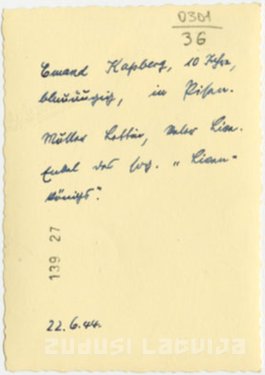 0301
36
Emand Kasberg, 10 Jahre,
blauäugig, in Pisen.
Mutter Lettin, Vater Live.
Enkel des sog. „Liven-
königs".
139 27
22.6.44.
zudusi Latvija